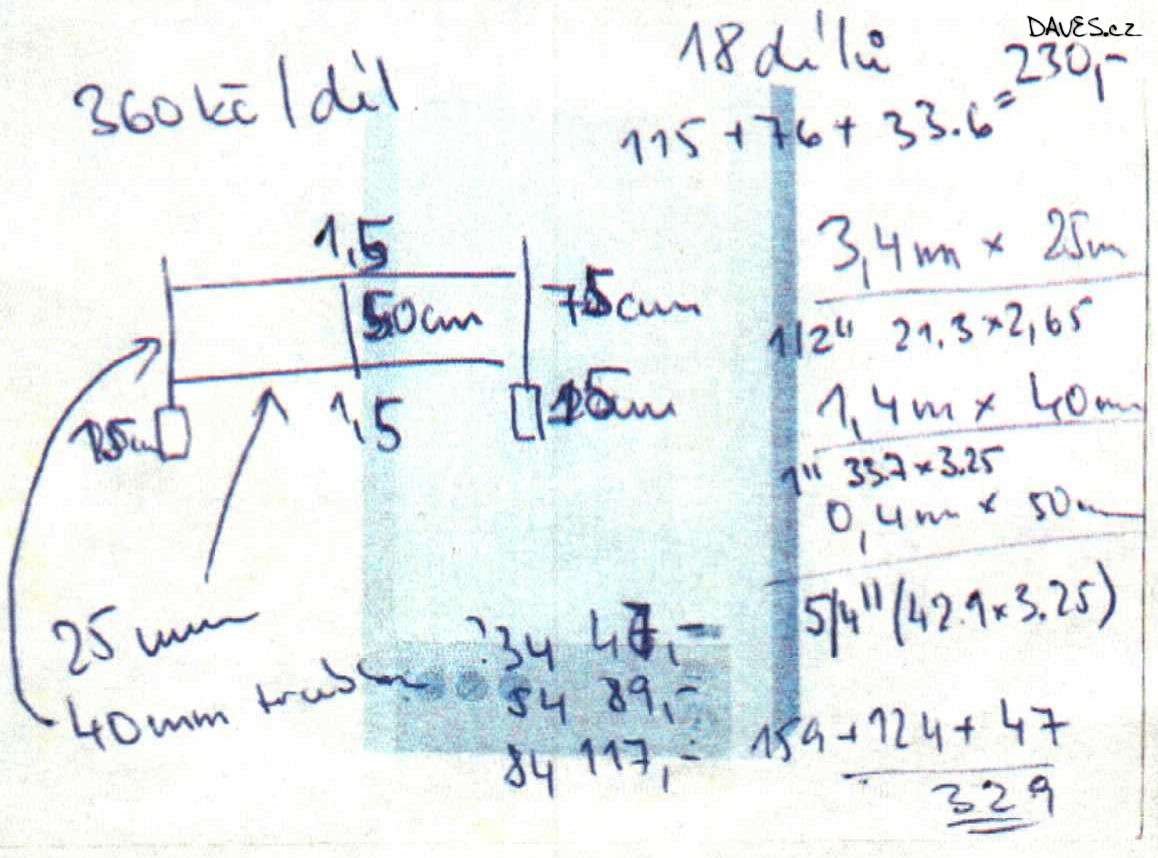 DAVES.cz
360 kč / díl
18 dílů
115 + 76 + 33.6 = 230,-
1,5
50cm
75cm
15cm
1,5
25 mm
40mm
3,4m × 25m
1/2" 21,3×2,65
1,4m × 40mm
1" 33.7×3.25
0,4m × 50m
5/4" (42.9×3.25)
34 47,-
54 89,-
84 117,-
159 + 124 + 47
329